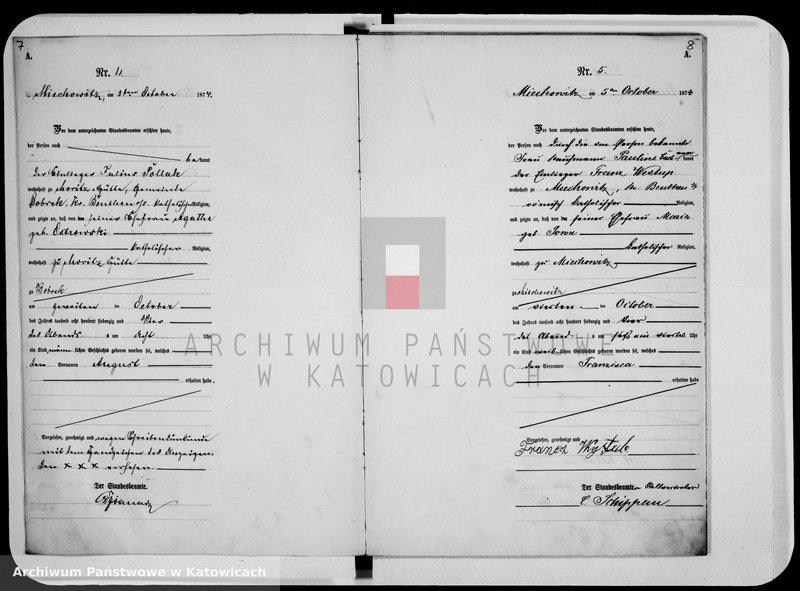 7
A.
Nr. 4.
Miechowitz, am 2ten October 1874.
Vor dem unterzeichneten Standesbeamten erschien heute,
der Person nach
bekannt
der Einlieger Julius Pollak
wohnhaft zu Moritz Hütte, Gemeinde
Bobrek, Kr. Beuthen O/S. katholischer Religion,
und zeigte an, daß von seiner Ehefrau Agatha
geb.
katholischer Religion,
wohnhaft zu Moritz Hütte
zu Bobrek
am zweiten ten October
des Jahres tausend acht hundert siebenzig und vier
des Abends um acht Uhr
ein Kind männlichen Geschlechts geboren worden sei, welches
den Vornamen August
erhalten habe.
Vorgelesen, genehmigt und wegen Schreibensunkunde
mit dem Handzeichen des Anzeigen-
den x x x versehen.
Der Standesbeamte.
8
A.
Nr. 5.
Miechowitz am 5ten October 1874
Vor dem unterzeichneten Standesbeamten erschien heute,
der Person nach durch die von Person bekannte
Frau Kaufmann Pauline kannt
der Einlieger Franz
wohnhaft zu Miechowitz, Kr. Beuthen O/S
römisch katholischer Religion,
und zeigte an, daß von seiner Ehefrau Maria
geb.
katholischer Religion,
wohnhaft zu Miechowitz
zu Miechowitz
am vierten ten October
des Jahres tausend acht hundert siebenzig und vier
des Abend um fünf ein viertel Uhr
ein Kind weiblichen Geschlechts geboren worden sei, welches
den Vornamen Franzisca
erhalten habe.
Vorgelesen, genehmigt und
Der Standesbeamte
C Schippen
ARCHIWUM PAŃSTWOWE
W KATOWICACH
Archiwum Państwowe w Katowicach